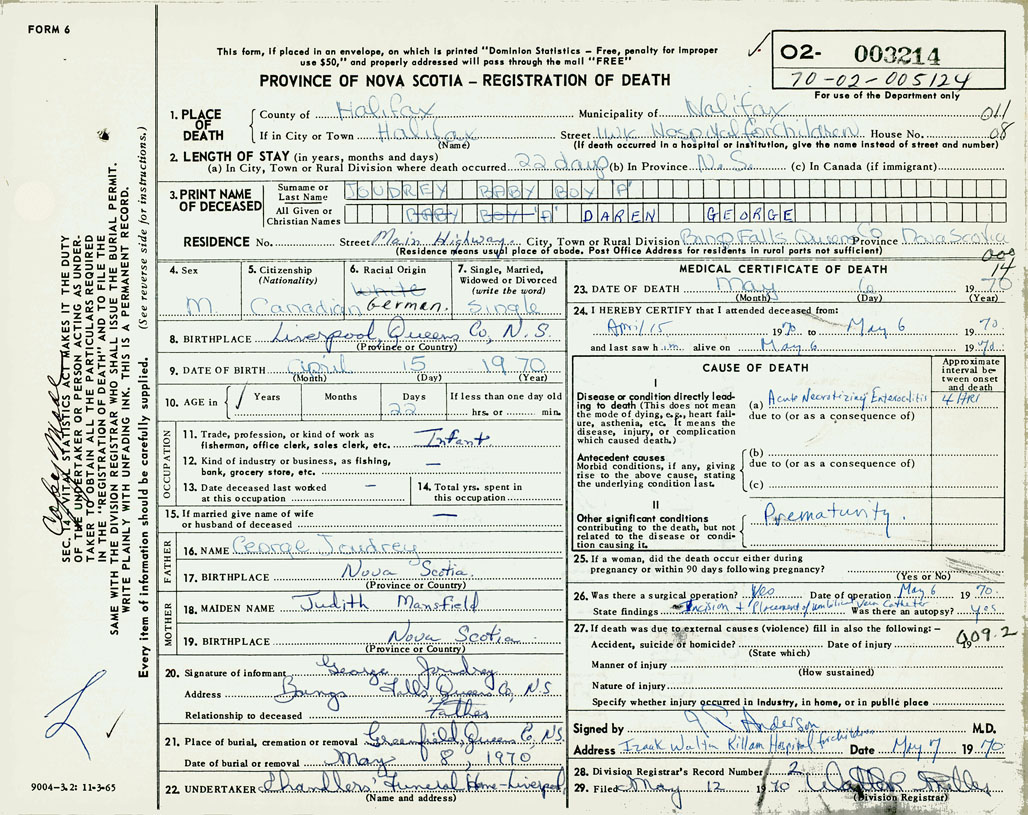 FORM 6
This form, if placed in an envelope, on which is printed "Dominion Statistics – Free, penalty for improper
use $50," and properly addressed will pass through the mail "FREE"
PROVINCE OF NOVA SCOTIA – REGISTRATION OF DEATH
✓ O2- 003214
70-02-005124
For use of the Department only
1. PLACE OF DEATH { County of Halifax Municipality of Halifax 011
If in City or Town Halifax Street IWK Hospital for Children House No. 08
(Name) (If death occurred in a hospital or institution, give the name instead of street and number)
2. LENGTH OF STAY (in years, months and days)
(a) In City, Town or Rural Division where death occurred 22 days (b) In Province N.S. (c) In Canada (if immigrant)
3. PRINT NAME OF DECEASED { Surname or Last Name JOUDREY BABY BOY 'A'
All Given or Christian Names BABY BOY 'A' DAREN GEORGE
RESIDENCE No. Street Main Highway City, Town or Rural Division Bangs Falls, Queens Co Province Nova Scotia
(Residence means usual place of abode. Post Office Address for residents in rural parts not sufficient) 000
14
4. Sex M.
5. Citizenship (Nationality) Canadian
6. Racial Origin White German.
7. Single, Married, Widowed or Divorced (write the word) Single
8. BIRTHPLACE Liverpool, Queens Co, N.S.
(Province or Country)
9. DATE OF BIRTH April 15 1970
(Month) (Day) (Year)
10. AGE in { ✓ Years Months Days 22 If less than one day old
hrs. or min.
OCCUPATION
11. Trade, profession, or kind of work as
fisherman, office clerk, sales clerk, etc. Infant
12. Kind of industry or business, as fishing,
bank, grocery store, etc. —
13. Date deceased last worked
at this occupation —
14. Total yrs. spent in
this occupation
15. If married give name of wife
or husband of deceased —
FATHER
16. NAME George Joudrey
17. BIRTHPLACE Nova Scotia
(Province or Country)
MOTHER
18. MAIDEN NAME Judith Mansfield
19. BIRTHPLACE Nova Scotia
(Province or Country)
20. Signature of informant George Joudrey
Address Bangs Falls, Queens Co, N.S
Relationship to deceased Father
21. Place of burial, cremation or removal Greenfield, Queens Co, NS.
Date of burial or removal May 8, 1970
22. UNDERTAKER Chandlers' Funeral Home – Liverpool
(Name and address)
MEDICAL CERTIFICATE OF DEATH
23. DATE OF DEATH May 6 1970
(Month) (Day) (Year)
24. I HEREBY CERTIFY that I attended deceased from:
April 15 1970 to May 6 1970.
and last saw him alive on May 6 1970.
CAUSE OF DEATH
Approximate interval between onset and death
I
Disease or condition directly leading to death (This does not mean the mode of dying, e.g., heart failure, asthenia, etc. It means the disease, injury, or complication which caused death.)
(a) Acute Necrotizing Enterocolitis 4 HRS
due to (or as a consequence of)
Antecedent causes
Morbid conditions, if any, giving rise to the above cause, stating the underlying condition last.
(b)
due to (or as a consequence of)
(c)
II
Other significant conditions contributing to the death, but not related to the disease or condition causing it.
Prematurity.
25. If a woman, did the death occur either during
pregnancy or within 90 days following pregnancy?
(Yes or No)
26. Was there a surgical operation? Yes Date of operation May 6 1970.
State findings Incision + Placement of Umbilical Vein Catheter Was there an autopsy? yes
27. If death was due to external causes (violence) fill in also the following: –
Accident, suicide or homicide? Date of injury 19 009.2
(State which)
Manner of injury
(How sustained)
Nature of injury
Specify whether injury occurred in industry, in home, or in public place
Signed by Anderson M.D.
Address Izaak Walton Killam Hospital for children Date May 7 1970
28. Division Registrar's Record Number 2
29. Filed May 12 1970
(Division Registrar)
SEC. 14, VITAL STATISTICS ACT MAKES IT THE DUTY
OF THE UNDERTAKER OR PERSON ACTING AS UNDER-
TAKER TO OBTAIN ALL THE PARTICULARS REQUIRED
IN THE "REGISTRATION OF DEATH" AND TO FILE THE
SAME WITH THE DIVISION REGISTRAR WHO SHALL ISSUE THE BURIAL PERMIT.
WRITE PLAINLY WITH UNFADING INK. THIS IS A PERMANENT RECORD.
Every item of information should be carefully supplied. (See reverse side for instructions.)
9004–3.2: 11-3-65